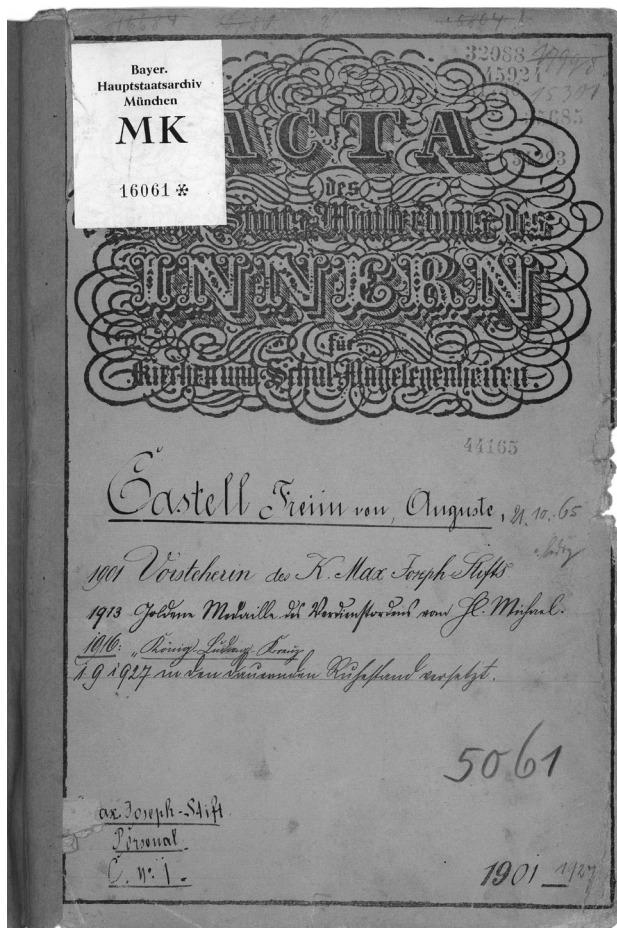 32088
45924
Bayer.
Hauptstaatsarchiv
München
MK
16061 *
ACTA
des
Staats-Ministeriums des
INNERN
für
Kirchen und Schul-Angelegenheiten.
44165
Castell Freiin von, Auguste, 21.10.65
ledig
1901 Vorsteherin des K. Max Joseph-Stifts
1913 Goldene Medaille des Verdienstordens vom Hl. Michael.
1916: "König Ludwig-Kreuz
1 9 1927 in den dauernden Ruhestand versetzt.
5061
ax Joseph-Stift
Personal
C. nr. 1.
1901 – 1927